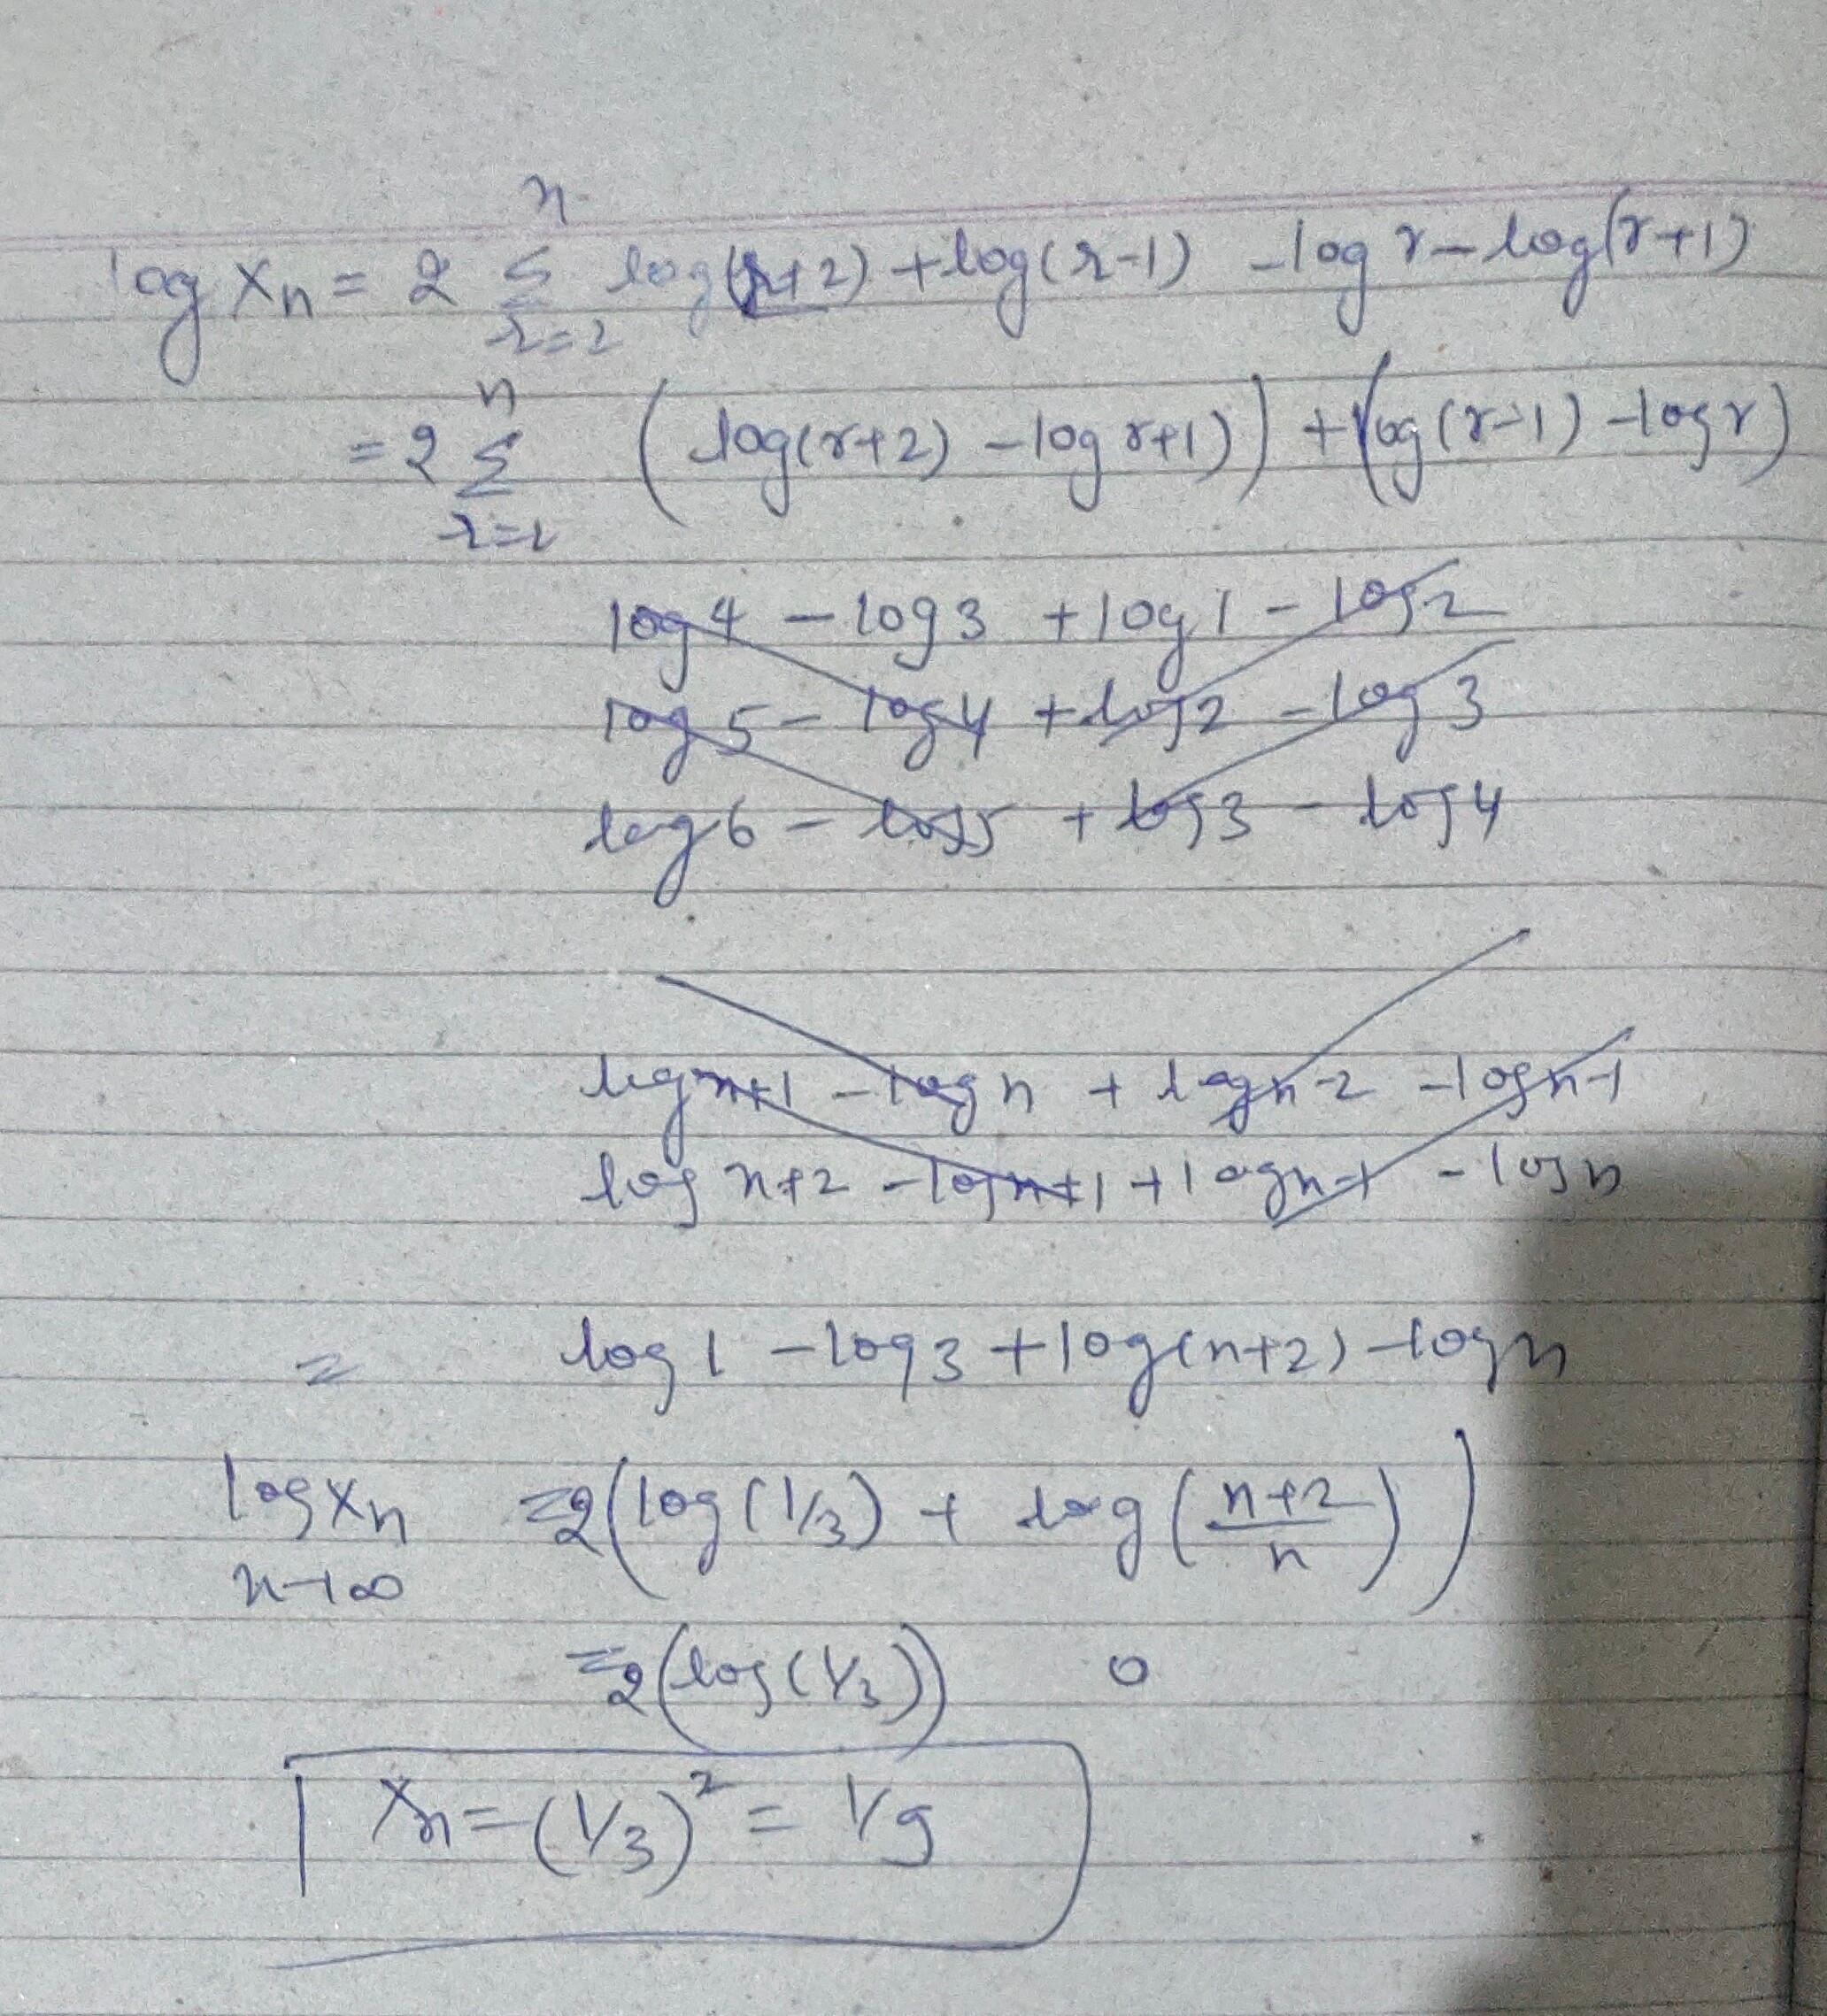 n
log xₙ = 2 Σ log(r+2) + log(r-1) - log r - log(r+1)
r=2
n
= 2 Σ ( log(r+2) - log r+1) ) + (log(r-1) - log r)
r=2
log 4 - log 3 + log 1 - log 2
log 5 - log 4 + log 2 - log 3
log 6 - log 5 + log 3 - log 4
log n+1 - log n + log n-2 - log n-1
log n+2 - log n+1 + log n-1 - log n
= log 1 - log 3 + log(n+2) - log n
log xₙ = 2 ( log (1/3) + log ( n+2 / n ) )
n→∞
= 2 ( log (1/3) ) 0
xₙ = (1/3)² = 1/9